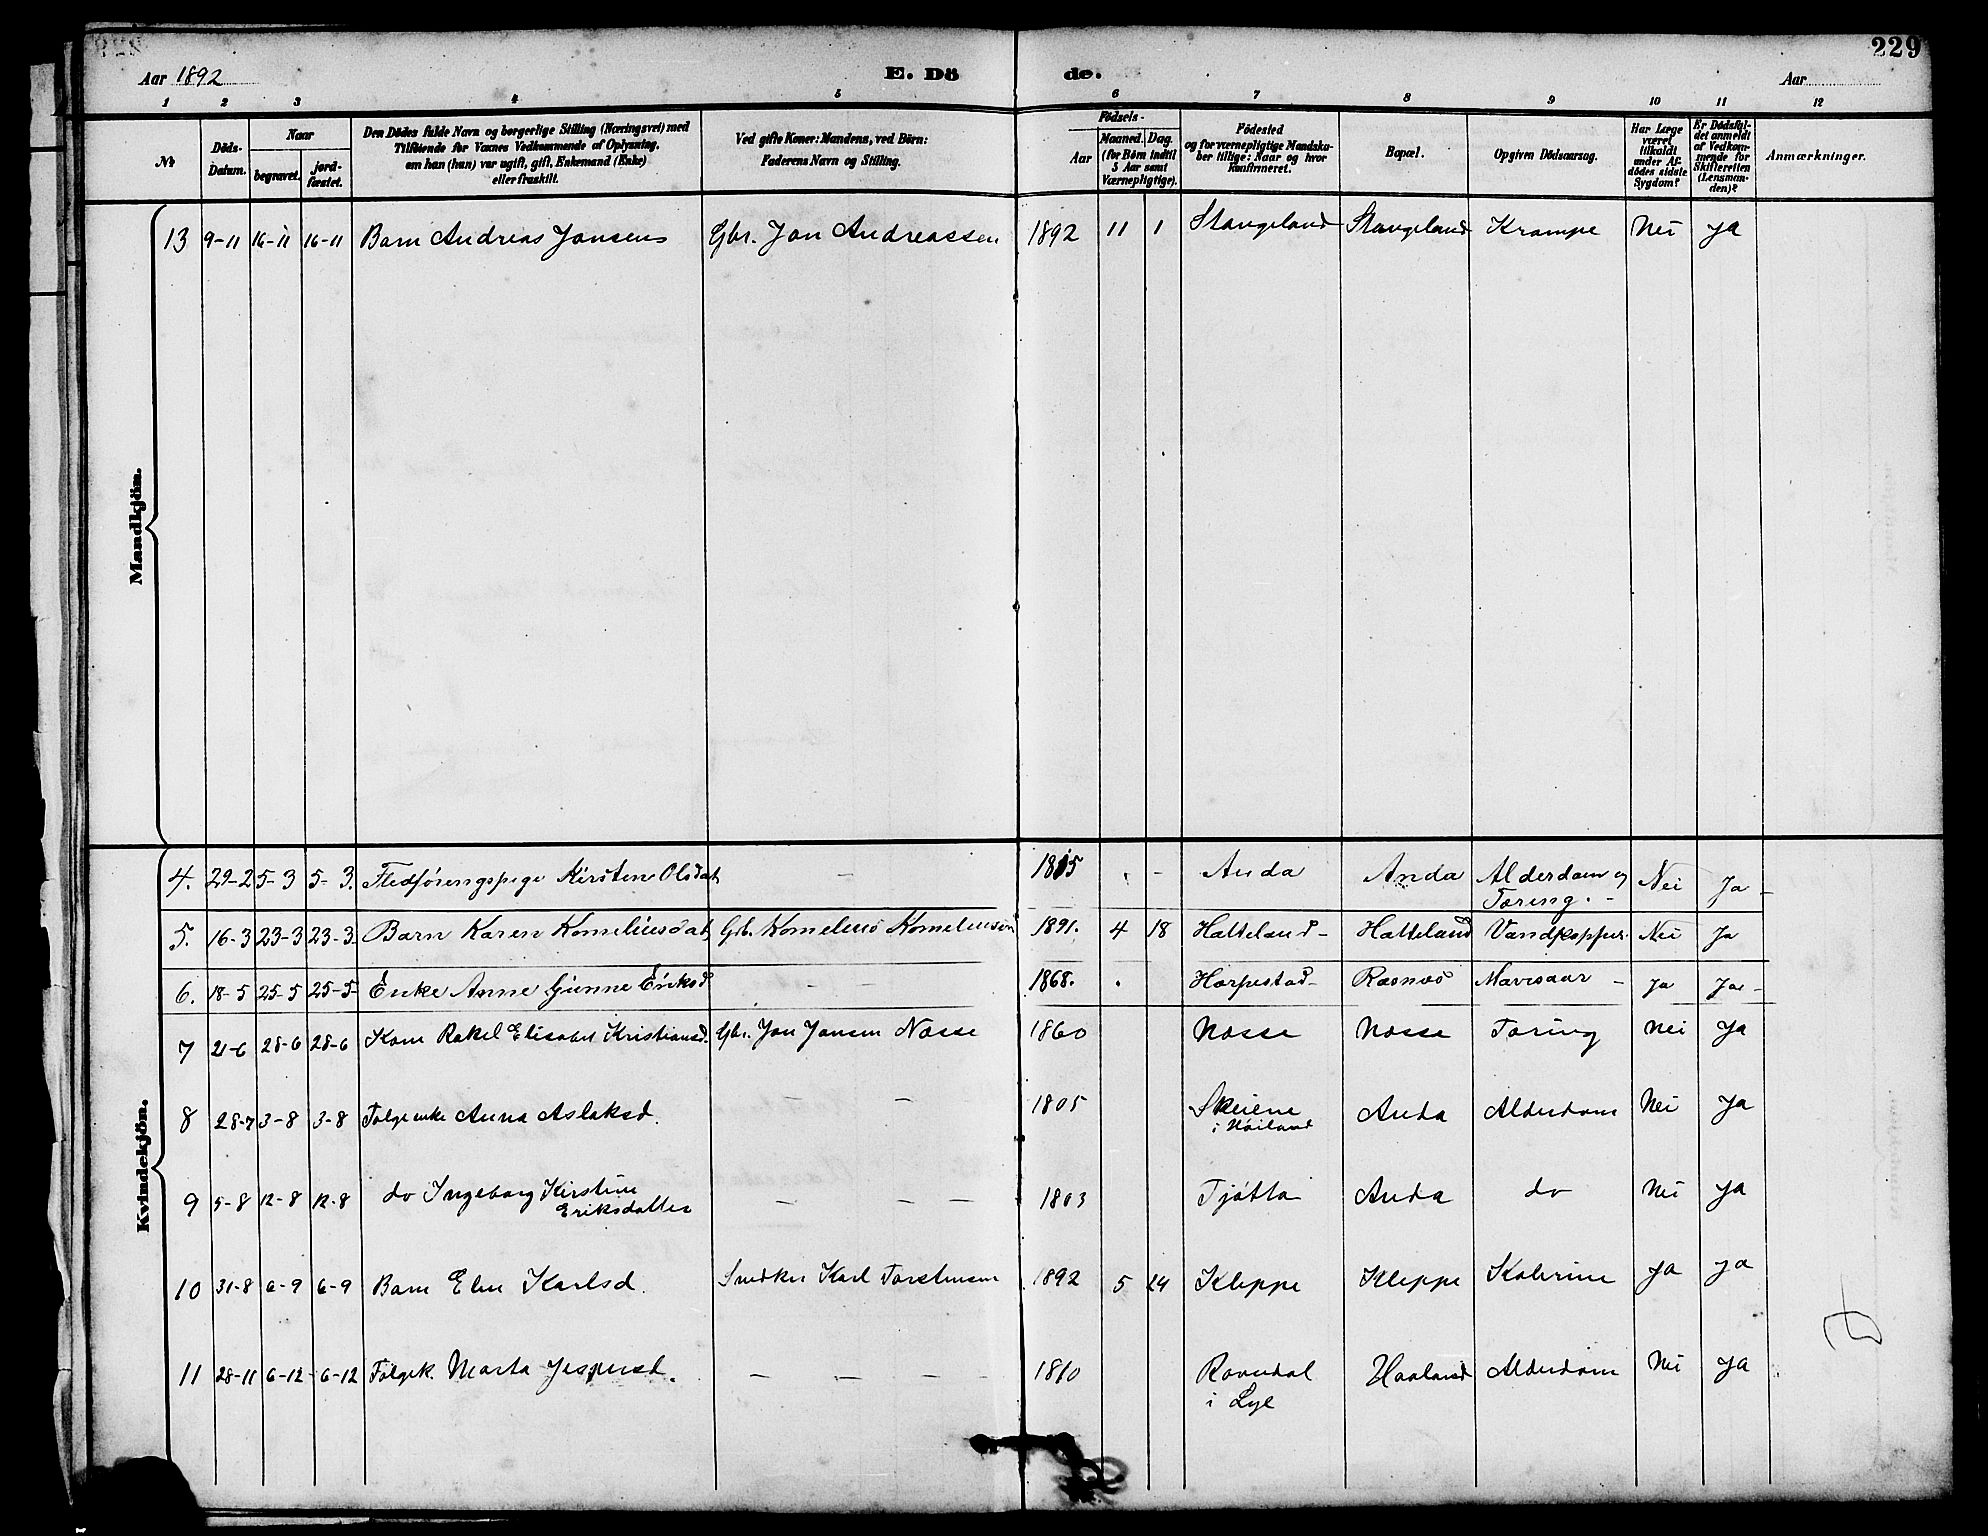 229
Aar 1892 E. Dö de. Aar
1 2 3 4 5 6 7 8 9 10 11 12
№ Döds-Datum. Naar begravet. jord-fæstet. Den Dödes fulde Navn og borgerlige Stilling (Næringsvei) med Tilföiende for Voxnes Vedkommende af Oplysning, om han (hun) var ugift, gift, Enkemand (Enke) eller fraskilt. Ved gifte Koner: Mandens, ved Börn: Faderens Navn og Stilling. Födsels- Aar Maaned. Dag. (for Börn indtil 5 Aar samt Værnepligtige). Födested og for værnepligtige Mandskaber tillige: Naar og hvor Konfirmeret. Bopæl. Opgiven Dödsaarsag. Har Læge været tilkaldt under Afdödes sidste Sygdom? Er Dödsfaldet anmeldt af Vedkommende for Skifteretten (Lensmanden)? Anmærkninger.
Mandkjön.
13 9-11 16-11 16-11 Barn Andreas Jansens Gbr. Jan Andreassen 1892 11 1 Stangeland Stangeland Krampe Nei Ja
Kvindekjön.
4. 29-2 5-3 5-3. Fledføringspige Kirsten Olsdat – 1815 . - Anda Anda Alderdom og Nei Ja -
Tæring. -
5. 16-3 23-3 23-3 Barn Karen Korneliusdat, Grb. Kornelius Korneliussen 1891. 4 18 Hatteland - Hatteland Vandkopper. Nei Ja
6. 18-5 25-5 25-5- Enke Anne Gunne Eriksd - - 1868. . Harpestad - Rosnæs Mavesaar - Ja Ja -
7 21-6 28-6 28-6 Kone Rakel Elisabet Kristiansd. Gbr. Jan Jansen Næsse 1860 Næsse Næsse Tæring Nei Ja
8 28-7 3-8 3-8 Følgeenke Anna Aslaksd. – – 1805 Skeiene Anda Alderdom Nei Ja
i Høiland
9 5-8 12-8 12-8 do Ingeborg Kirstine – – – 1803 Tjøtta Anda do Nei Ja
Eriksdatter
10 31-8 6-9 6-9 Barn Elen Karlsd. Snedker Karl Torstensen 1892 5 24 Kleppe Kleppe Kolerine Ja Ja
11 28-11 6-12 6-12 Følgek. Marta Jespersd. – – – – 1810 Ravndal Haaland Alderdom Nei Ja
i Lye